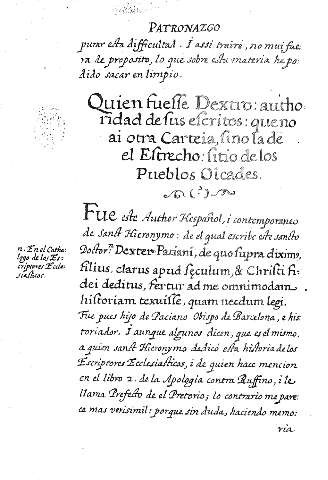 PATRONAZGO
purar esta difficultad. I assi traire, no mui fue
ra de proposito, lo que sobre esta materia he po
dido sacar en limpio.
Quien fuesse Dextro: autho
ridad de sus escritos: que no
ai otra Carteia, sino la de
el Estrecho: sitio de los
Pueblos Olcades.
Fue este Author Hespañol, i contemporaneo
de Sanct Hieronymo: de el qual escribe este sancto
Doctor. Dexter Paciani, de quo supra diximus,
filius, clarus apud sęculum, & Christi fi
dei deditus, fertur ad me omnimodam
historiam texuisse, quam necdum legi.
Fue pues hijo de Paciano Obispo de Barcelona, e his
toriador. I aunque algunos dicen, que es el mismo,
a quien sanct Hieronymo dedicò esta historia de los
Escriptores Ecclesiasticos, i de quien hace mencion
en el libro 2. de la Apologia contra Ruffino, i le
llama Prefecto de el Pretorio; lo contrario me pare
ce mas verisimil: porque sin duda, haciendo memo:
ria
n. En el Catha
logo de los Es
criptores Eccle
siasticos.